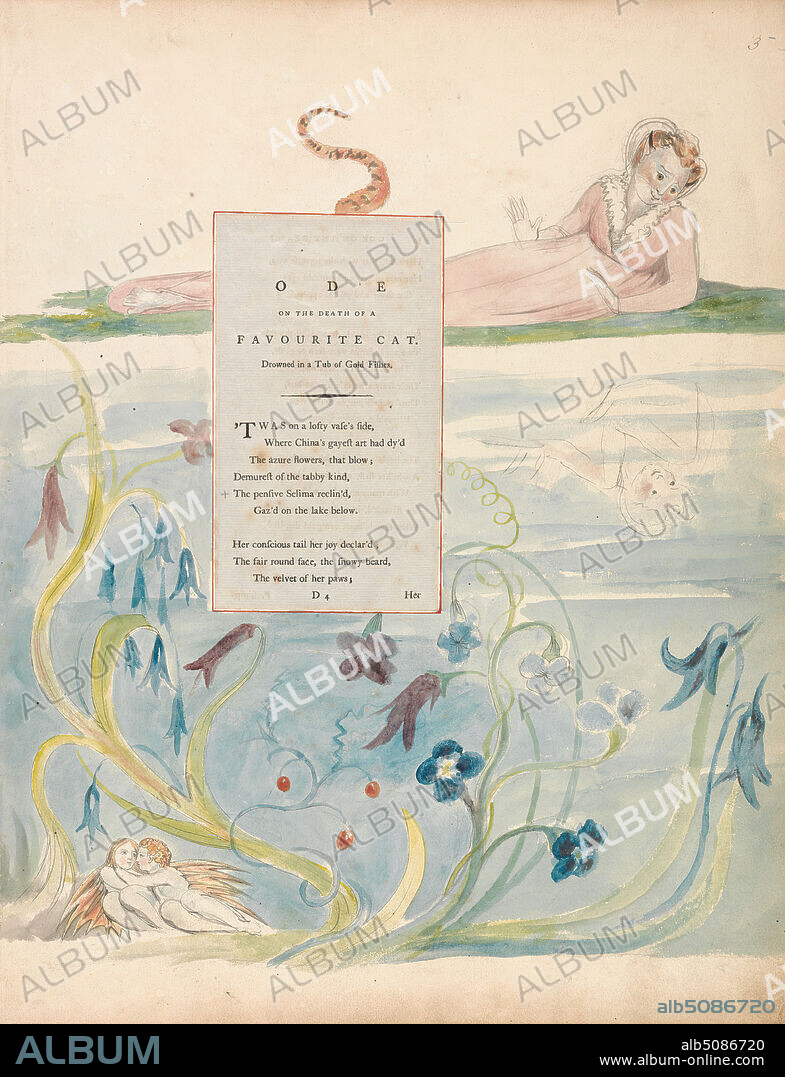 3
O D E
ON THE DEATH OF A
FAVOURITE CAT.
Drowned in a Tub of Gold Fiſhes.
'TWAS on a lofty vaſe's ſide,
Where China's gayeſt art had dy'd
The azure flowers, that blow;
Demureſt of the tabby kind,
+ The penſive Selima reclin'd,
Gaz'd on the lake below.
Her conſcious tail her joy declar'd;
The fair round face, the ſnowy beard,
The velvet of her paws;
D 4 Her
alb5086720
ALBUM
alb5086720
www.album-online.com